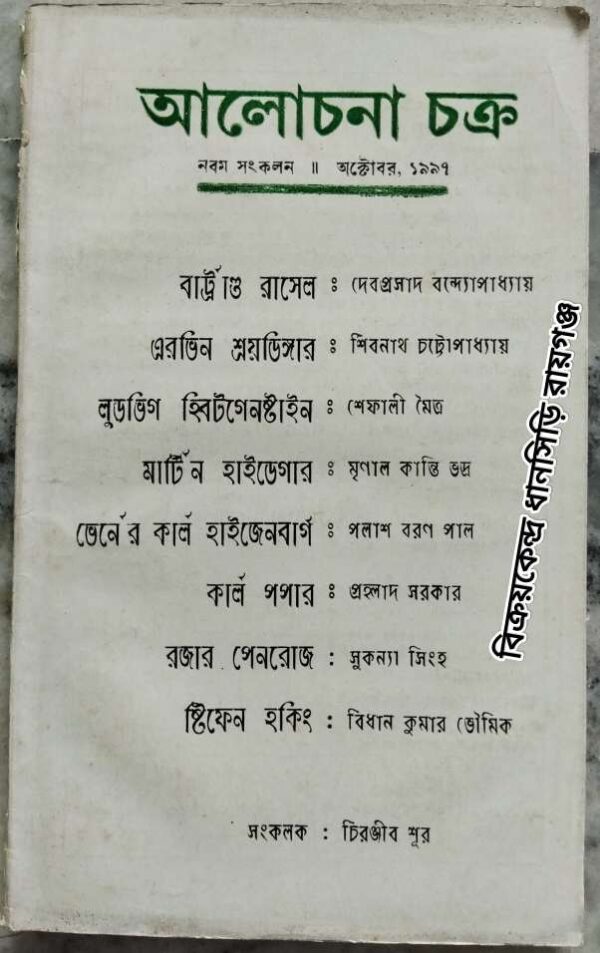 আলোচনা চক্র
নবম সংকলন ॥ অক্টোবর, ১৯৯৭
বার্ট্রাণ্ড রাসেল ঃ দেবপ্রসাদ বন্দ্যোপাধ্যায়
এরভিন শ্রয়ডিঙ্গার ঃ শিবনাথ চট্টোপাধ্যায়
লুডভিগ হ্বিটগেনষ্টাইন ঃ শেফালী মৈত্র
মার্টিন হাইডেগার ঃ মৃণাল কান্তি ভদ্র
ভের্নের কার্ল হাইজেনবার্গ ঃ পলাশ বরণ পাল
কার্ল পপার ঃ প্রহ্লাদ সরকার
রজার পেনরোজ : সুকন্যা সিংহ
ষ্টিফেন হকিং : বিধান কুমার ভৌমিক
সংকলক : চিরঞ্জীব শূর
বিক্রয়কেন্দ্র ধানসিড়ি রায়গঞ্জ